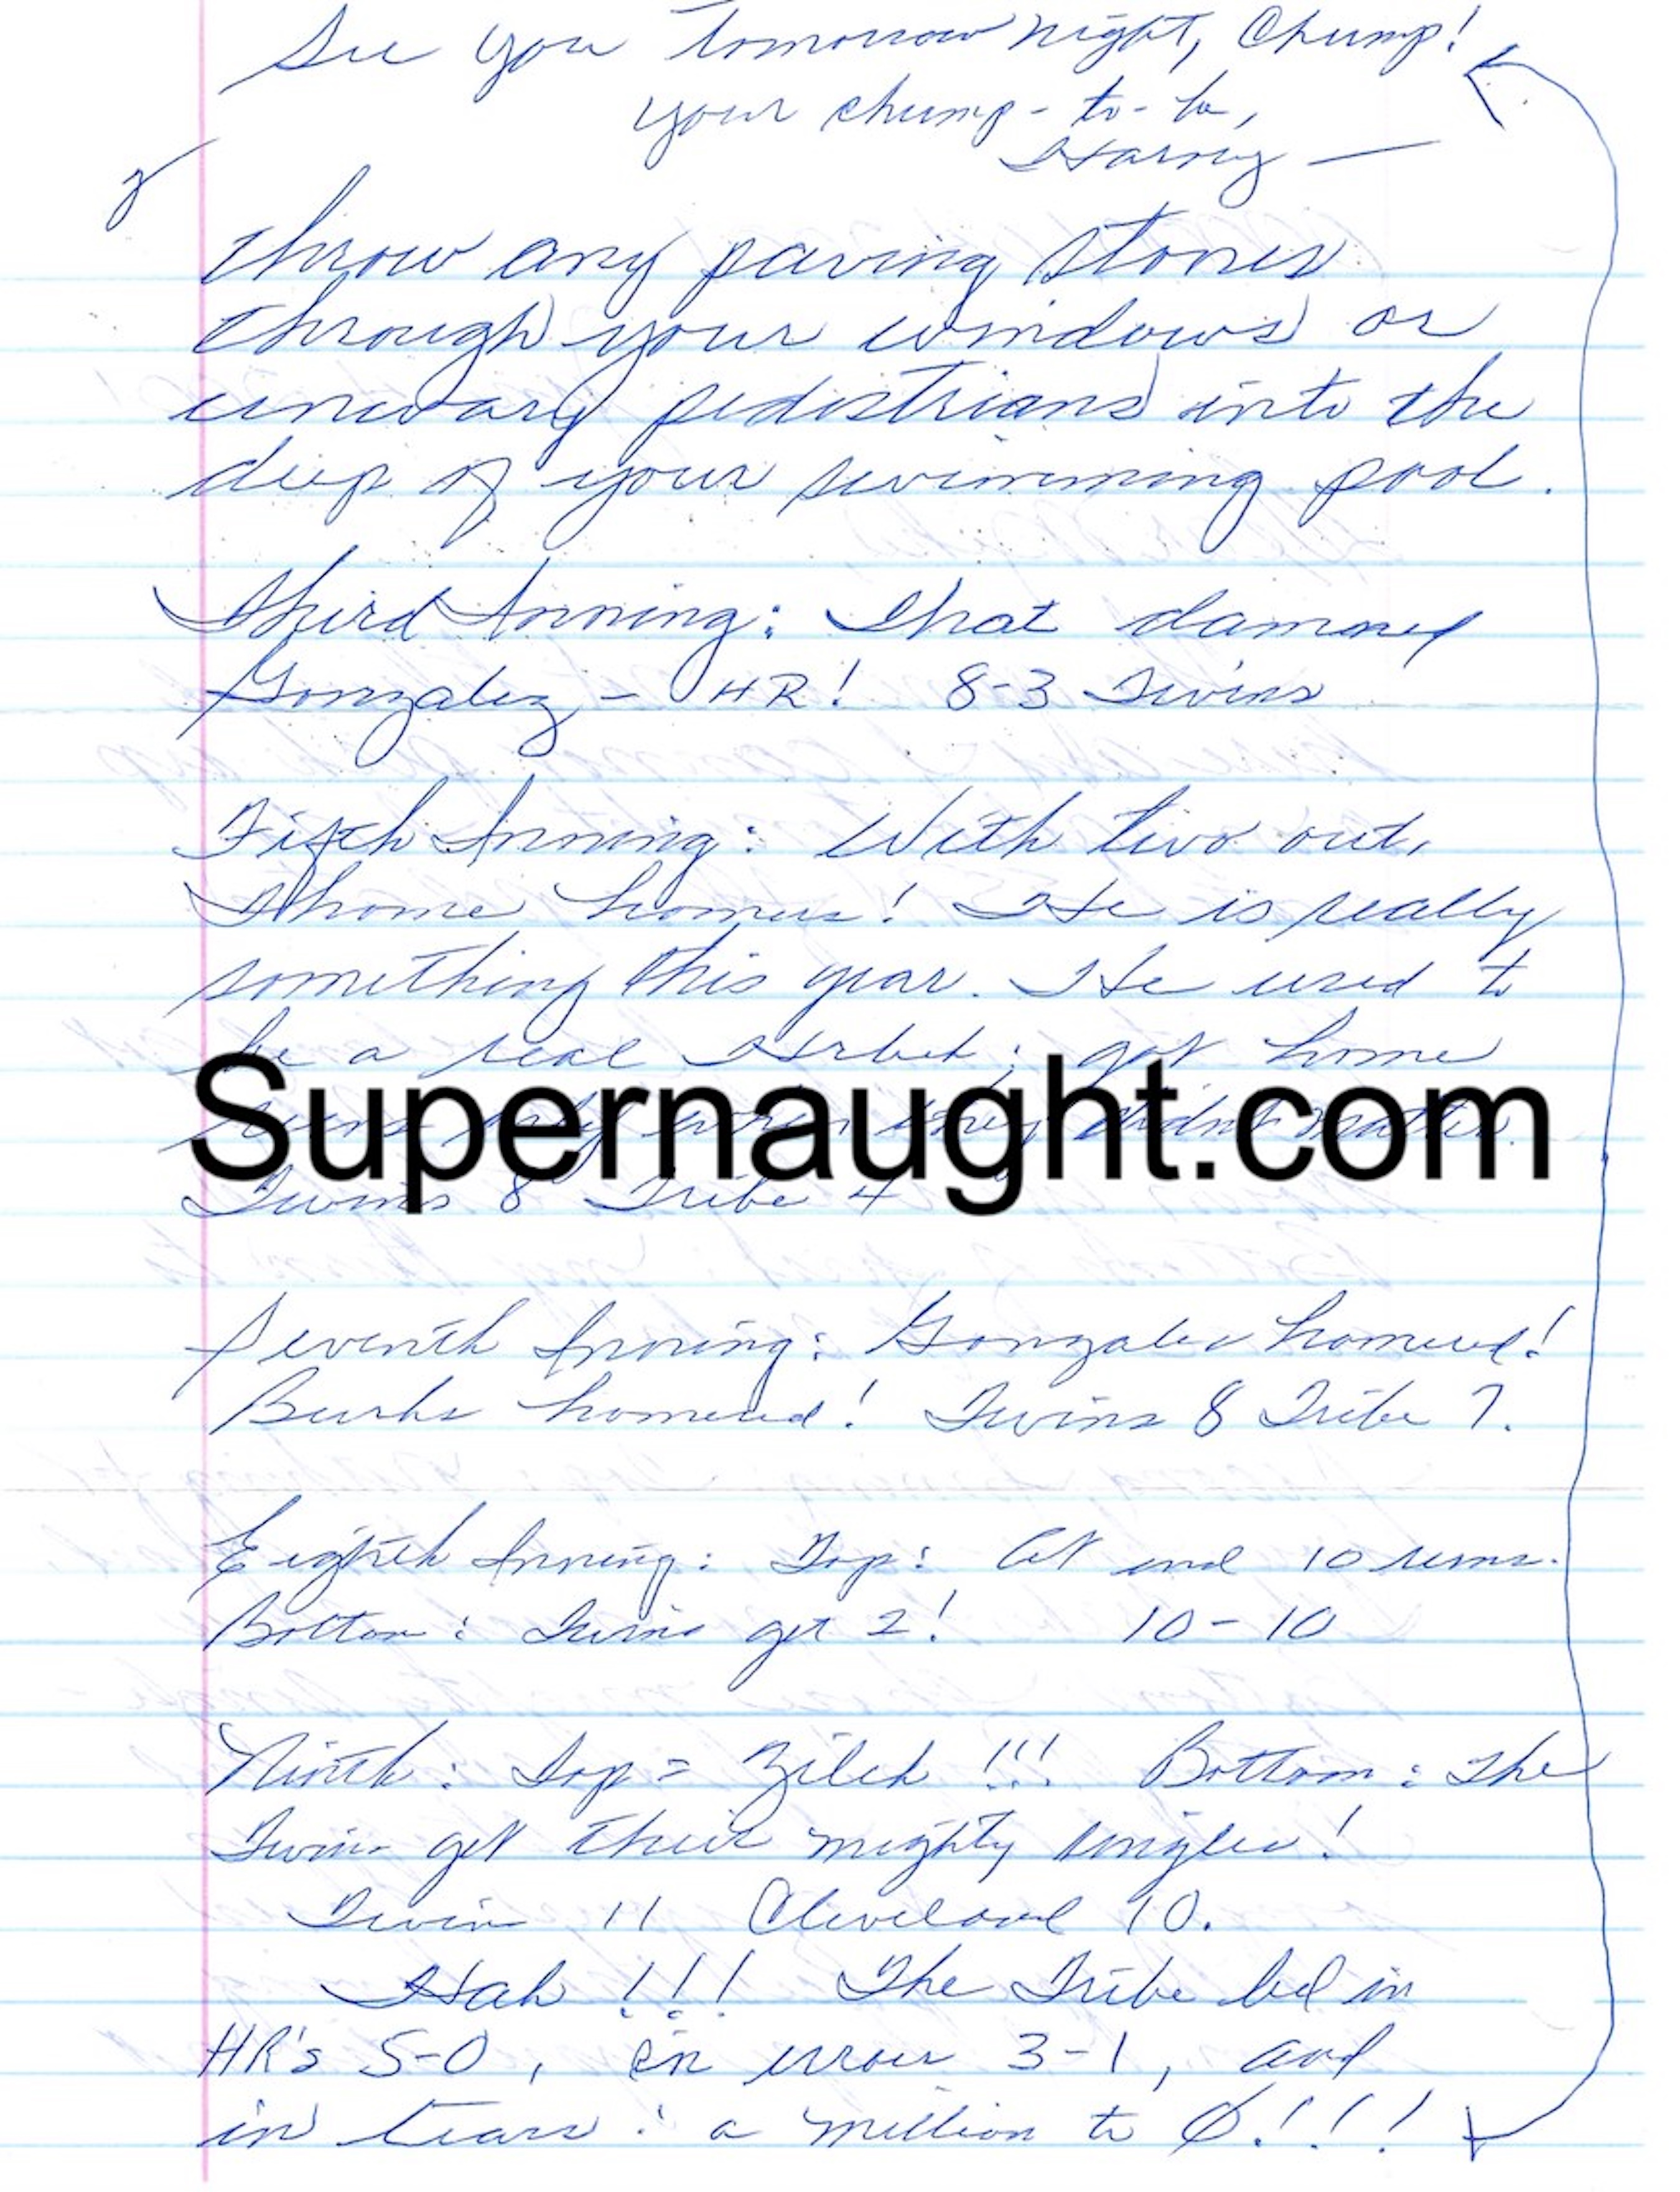 See you tomorrow night, Chump!
your chump-to-be,
Harvey —
throw any paving stones
through your windows or
unwary pedestrians into the
deep of your swimming pool.
Third Inning: That damned
Gonzalez - HR! 8-3 Twins
Fifth Inning: With two out,
Thome homers! He is really
something this year. He used to
be a real Hrbek; got home
runs only when they didn't matter.
Supernaught.com
Twins 8 Tribe 4
Seventh Inning: Gonzalez homered!
Burks homered! Twins 8 Tribe 7.
Eighth Inning: Top: At end 10 runs.
Bottom: Twins get 2! 10-10
Ninth: Top = Zilch!!! Bottom: The
Twins get their mighty singles!
Twins 11 Cleveland 10.
Hah!!! The Tribe led in
HR's 5-0, in errors 3-1, and
in tears: a million to 0!!!